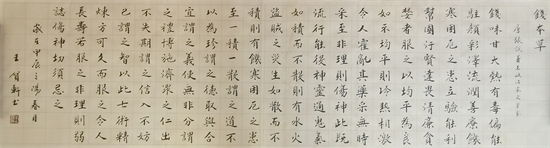 錢本草
唐張說
錢味甘大熱有毒偏能
駐顏彩澤流潤善療饑
寒困厄之患立驗能利
幫國汙賢達畏清廉貪
婪者服之以均平為良
如不均平則冷熱相激
令人霍亂其藥采無時
采至非理則傷神此既
流行能役神靈通鬼氣
如積而不散則有水火
盜賊之災生如散而不
積則有饑寒困厄之患
至一積一散謂之道不
以為珍謂之德取與合
宜謂之義使無非分謂
之禮博施濟眾謂之仁出
不失期謂之信入不妨
己謂之智以此七術精
煉方可久而服之令人
長壽若服之非理則弱
誌傷神切須忌之
歲在甲辰之陽春月
王 軒書